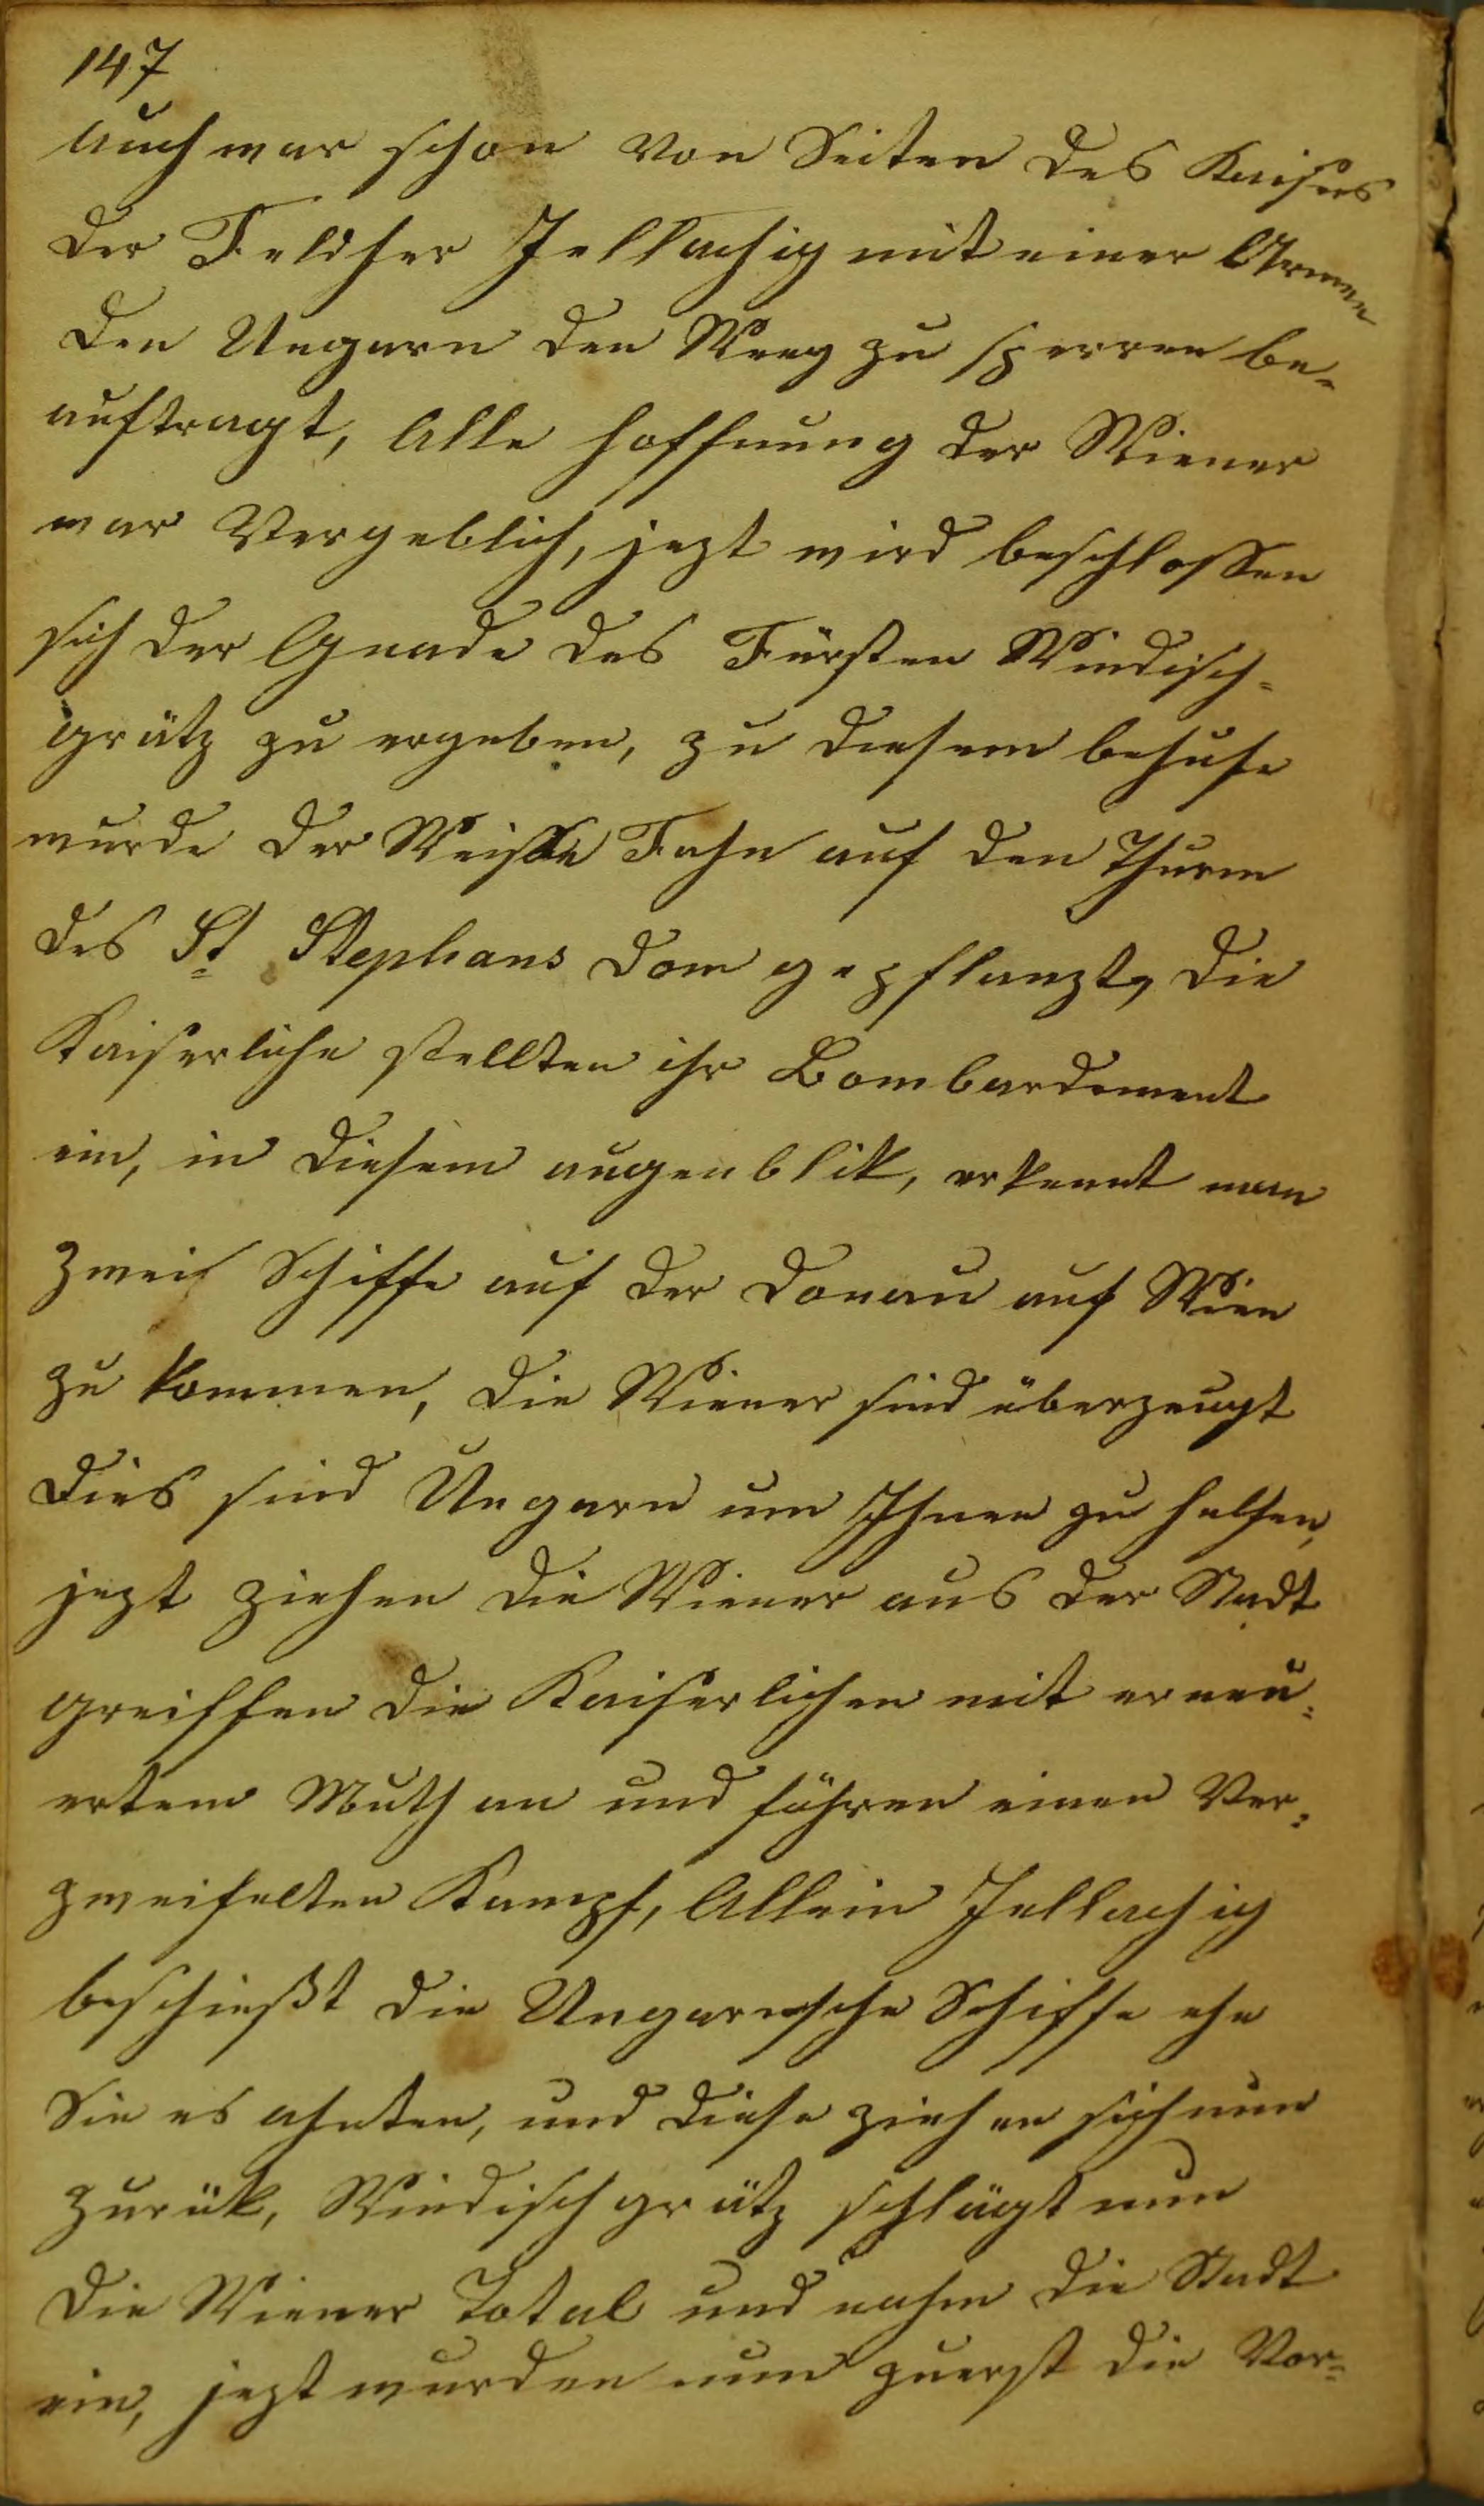 147
Auch war schon von Seiten des Kaisers
der Feldher Jellachig mit einer Armee
den Ungarn den Weeg zu sperren be-
auftragt, Alle hoffnung der Wiener
war Vergeblich, jezt wird beschlossen
sich der Gnade des Fürsten Windisch-
grätz zu ergeben, zu diesem behufe
wurde der Weisse Fahn auf den Thurm
des St Stephans Dom gepflanzt, die
Kaiserliche stellten ihr Bombardement
ein, in diesem augenblik, erkennt man
zwei Schiffe auf der Donau auf Wien
zu kommen, die Wiener sind überzeugt
dies sind Ungarn um Ihnen zu helfen,
jezt ziehen die Wiener aus der Stadt
greiffen die Kaiserlichen mit erneu-
ertem Muth an und führen einen Ver-
zweifelten Kampf, Allein Jellachig
beschießt die Ungarische Schiffe ehe
Sie es ahnten, und diese ziehen sich nun
zurük, Windischgrätz schlägt nun
die Wiener Total und nahm die Stadt
ein, jezt wurden nun zuerst die Vor-